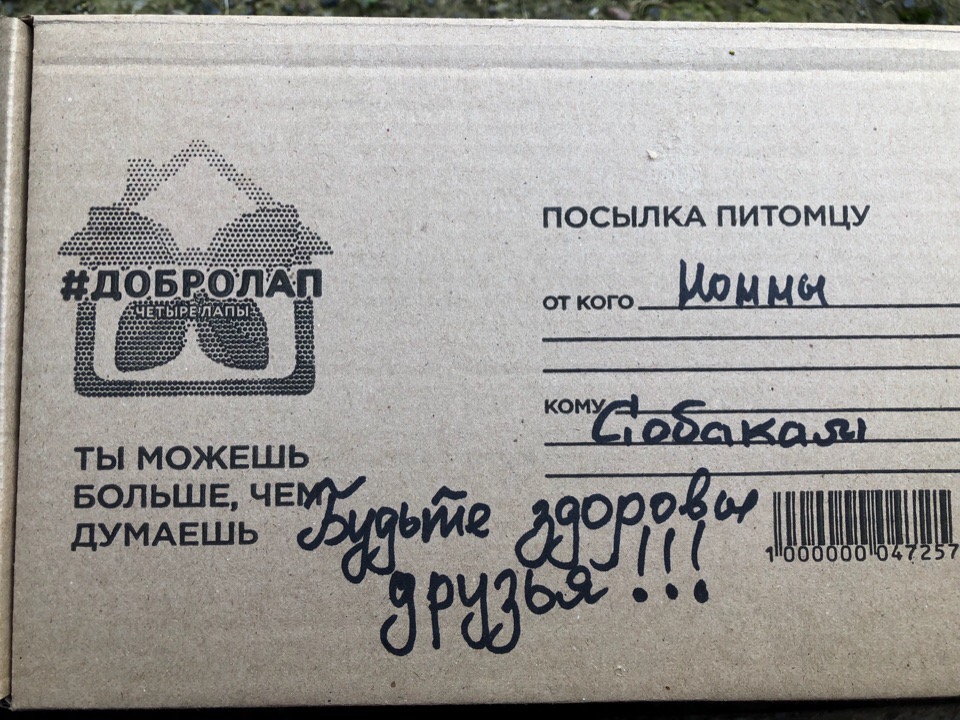 #ДОБРОЛАП
ЧЕТЫРЕ ЛАПЫ
ТЫ МОЖЕШЬ
БОЛЬШЕ, ЧЕМ
ДУМАЕШЬ
ПОСЫЛКА ПИТОМЦУ
ОТ КОГО Нонны
КОМУ Собакам
Будьте здоровы
друзья!!!
1 000000 047257